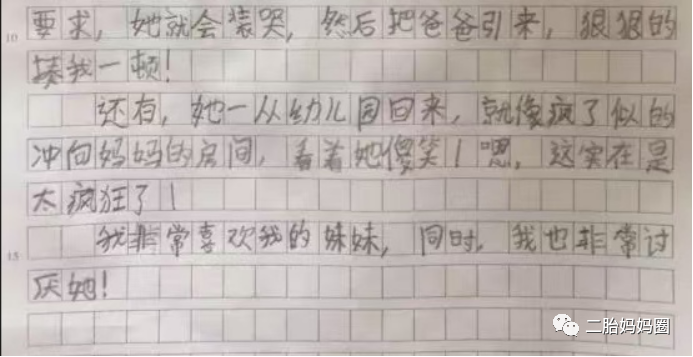 10 要求，她就会装哭，然后把爸爸引来，狠狠的
揍我一顿！
还有，她一从幼儿园回来，就像疯了似的
冲向妈妈的房间，看着她傻笑！嗯，这实在是
太疯狂了！
15 我非常喜欢我的妹妹，同时，我也非常讨
厌她！
二胎妈妈圈